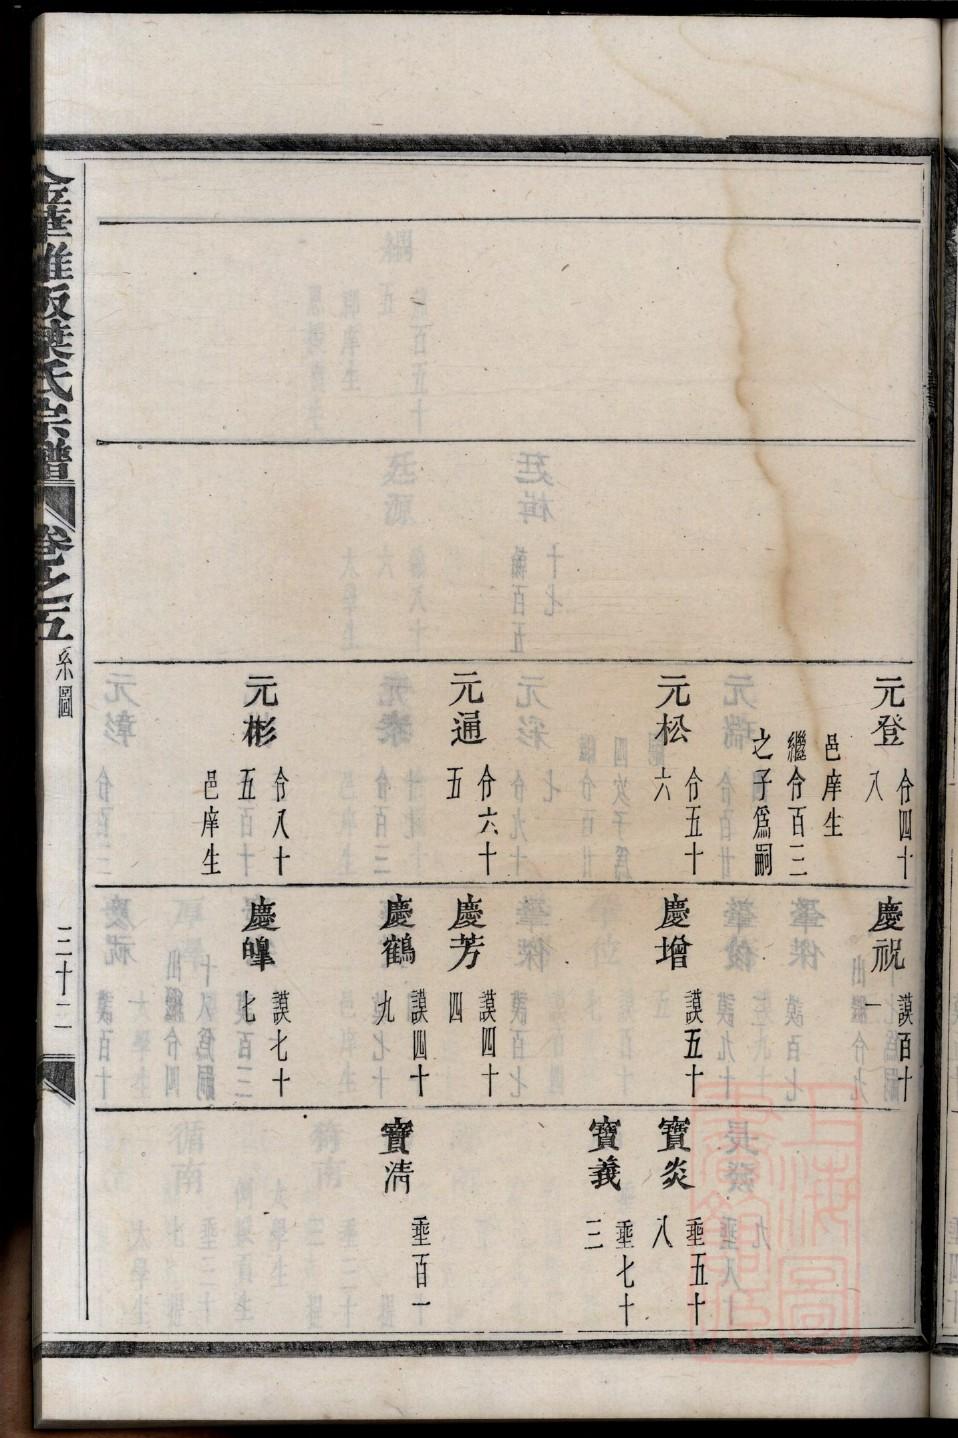 元登
令四十
八
邑庠生
繼令百三
之子爲嗣
元松
令五十
六
元通
令六十
五
元彬
令八十
五
邑庠生
慶祝
謨百十
一
慶增
謨五十
慶芳
謨四十
四
慶鶴
謨四十
九
慶
謨七十
七
寶炎
垂五十
八
寶義
垂七十
三
寶清
垂百一
金華雅畈葉氏宗譜
卷之五
系圖
三十二